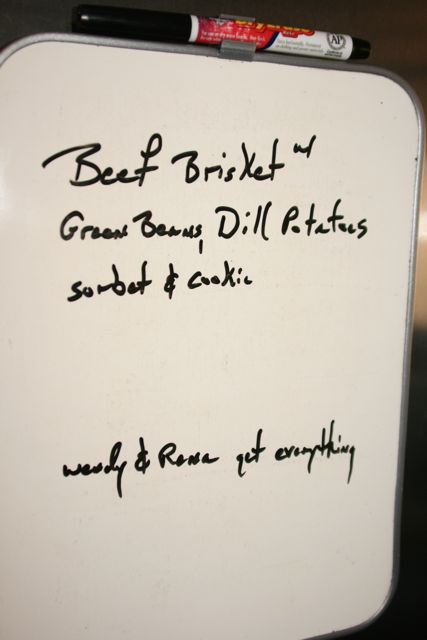 AP
Beef Brisket w/
Green Beans, Dill Potatoes
sorbet & cookie
wendy & Rena get everything